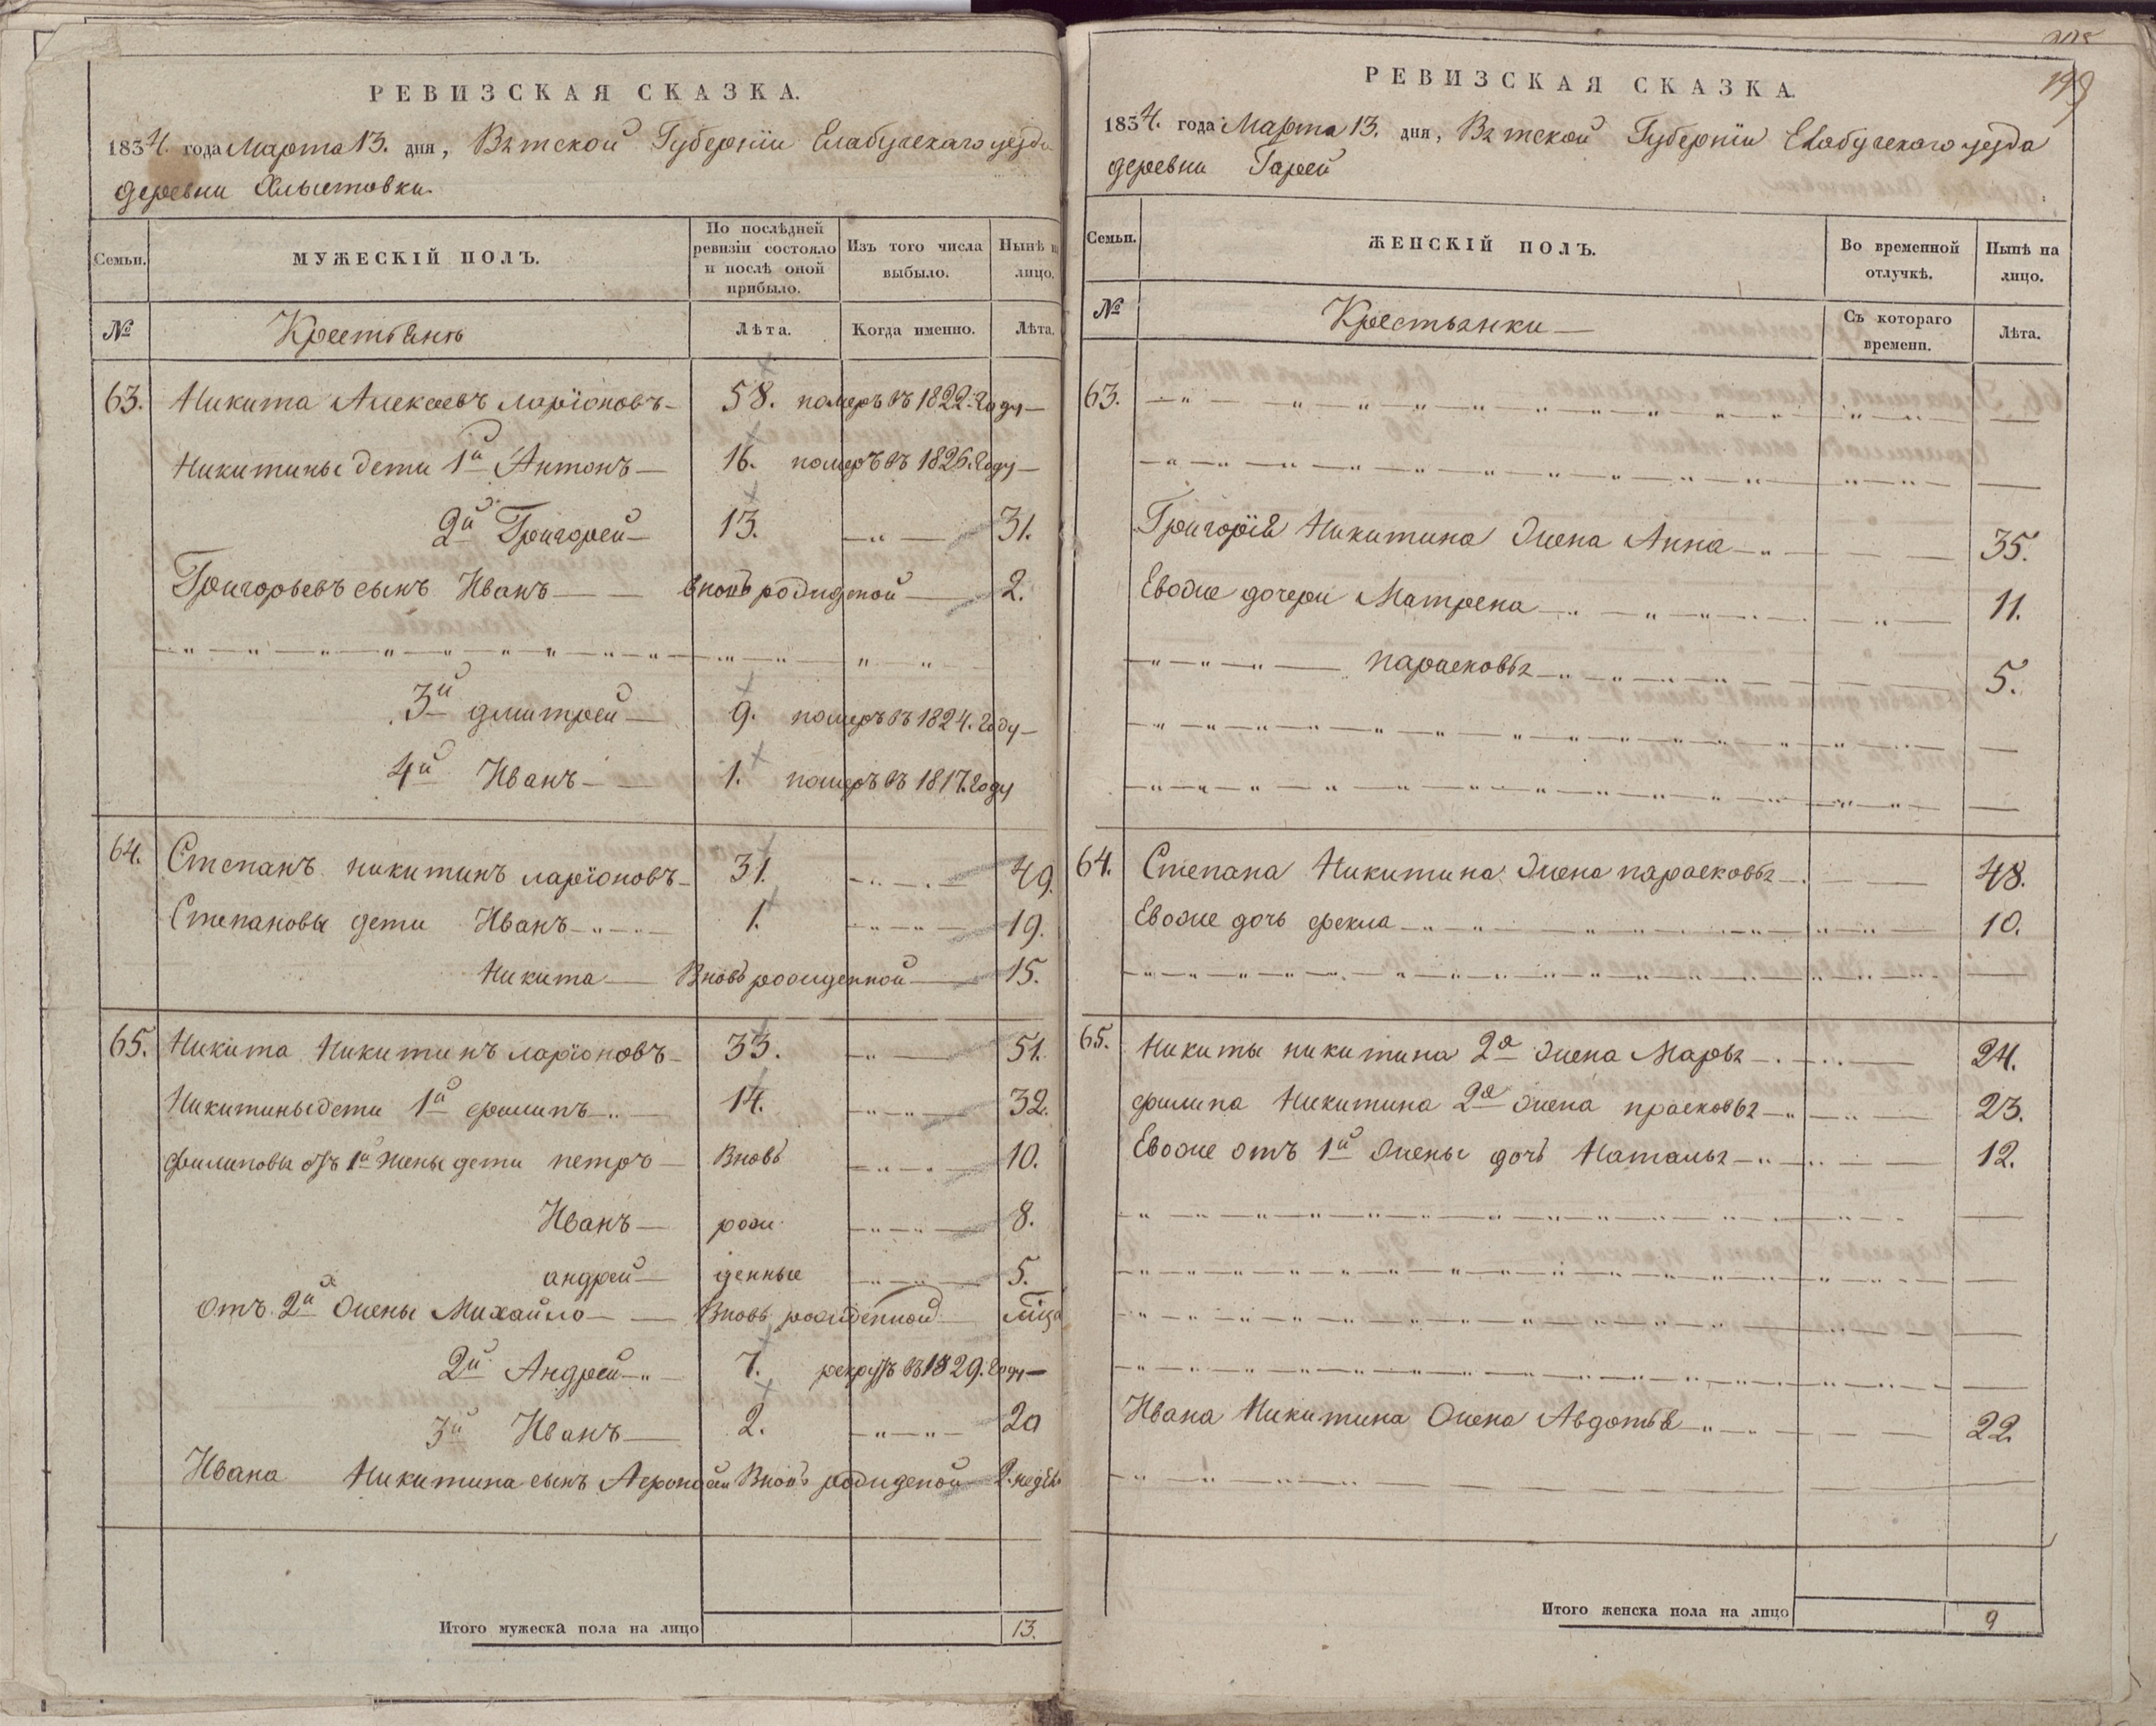 РЕВИЗСКАЯ СКАЗКА.
1834. года Марта 13. дня, Вятской Губернїи Елабугскаго уезда
деревни Хлыстовки.
Семьи.
МУЖЕСКІЙ ПОЛЪ.
По послѣдней ревизіи состояло и послѣ оной прибыло.
Изъ того числа выбыло.
Нынѣ н
лицо.
№
Крестьяне
Лѣта.
Когда именно.
Лѣта.
63. Никита Алексеевъ ларїоновъ 58. померъ въ 1822. году
Никитины дети 1й Антонъ 16. померъ въ 1826. году
2й Григорей 13. 31.
Григорьевъ сынъ Иванъ вновь рожденой 2.
3й дмитрей 9. померъ въ 1824. году
4й Иванъ 1. померъ въ 1817. году
64. Степанъ никитинъ ларїоновъ 31. 49.
Степановы дети Иванъ 1. 19.
Никита Вновь рожденной 15.
65. Никита Никитинъ ларїоновъ 33. 51.
Никитины дети 1й филипъ 14. 32.
филиповы отъ 1й жены дети петръ Вновь 10.
Иванъ рож 8.
андрей денные 5.
отъ 2й жены Михайло Вновь рожденной
2й Андрей 7. рекрутъ въ 1829. году
3й Иванъ 2. 20
Ивана Никитина сынъ Вновь рожденой 2. недѣл
Итого мужеска пола на лицо 13.
199
РЕВИЗСКАЯ СКАЗКА.
1834. года Марта 13. дня, Вятской Губернїи Елабугскаго уезда
деревни Гарей
Семьи.
ЖЕНСКІЙ ПОЛЪ.
Во временной отлучкѣ.
Нынѣ на лицо.
№
Крестьянки
Съ котораго времени.
Лѣта.
63.
Григорїя Никитина жена Анна 35.
Евоже дочери Матрена 11.
парасковья 5.
64. Степана Никитина жена парасковья 48.
Евоже дочь фекла 10.
65. Никиты никитина 2я жена Марья 24.
филипа Никитина 2я жена прасковья 23.
Евоже отъ 1й жены дочь Наталья 12.
Ивана Никитина жена Авдотья 22.
Итого женска пола на лицо 9